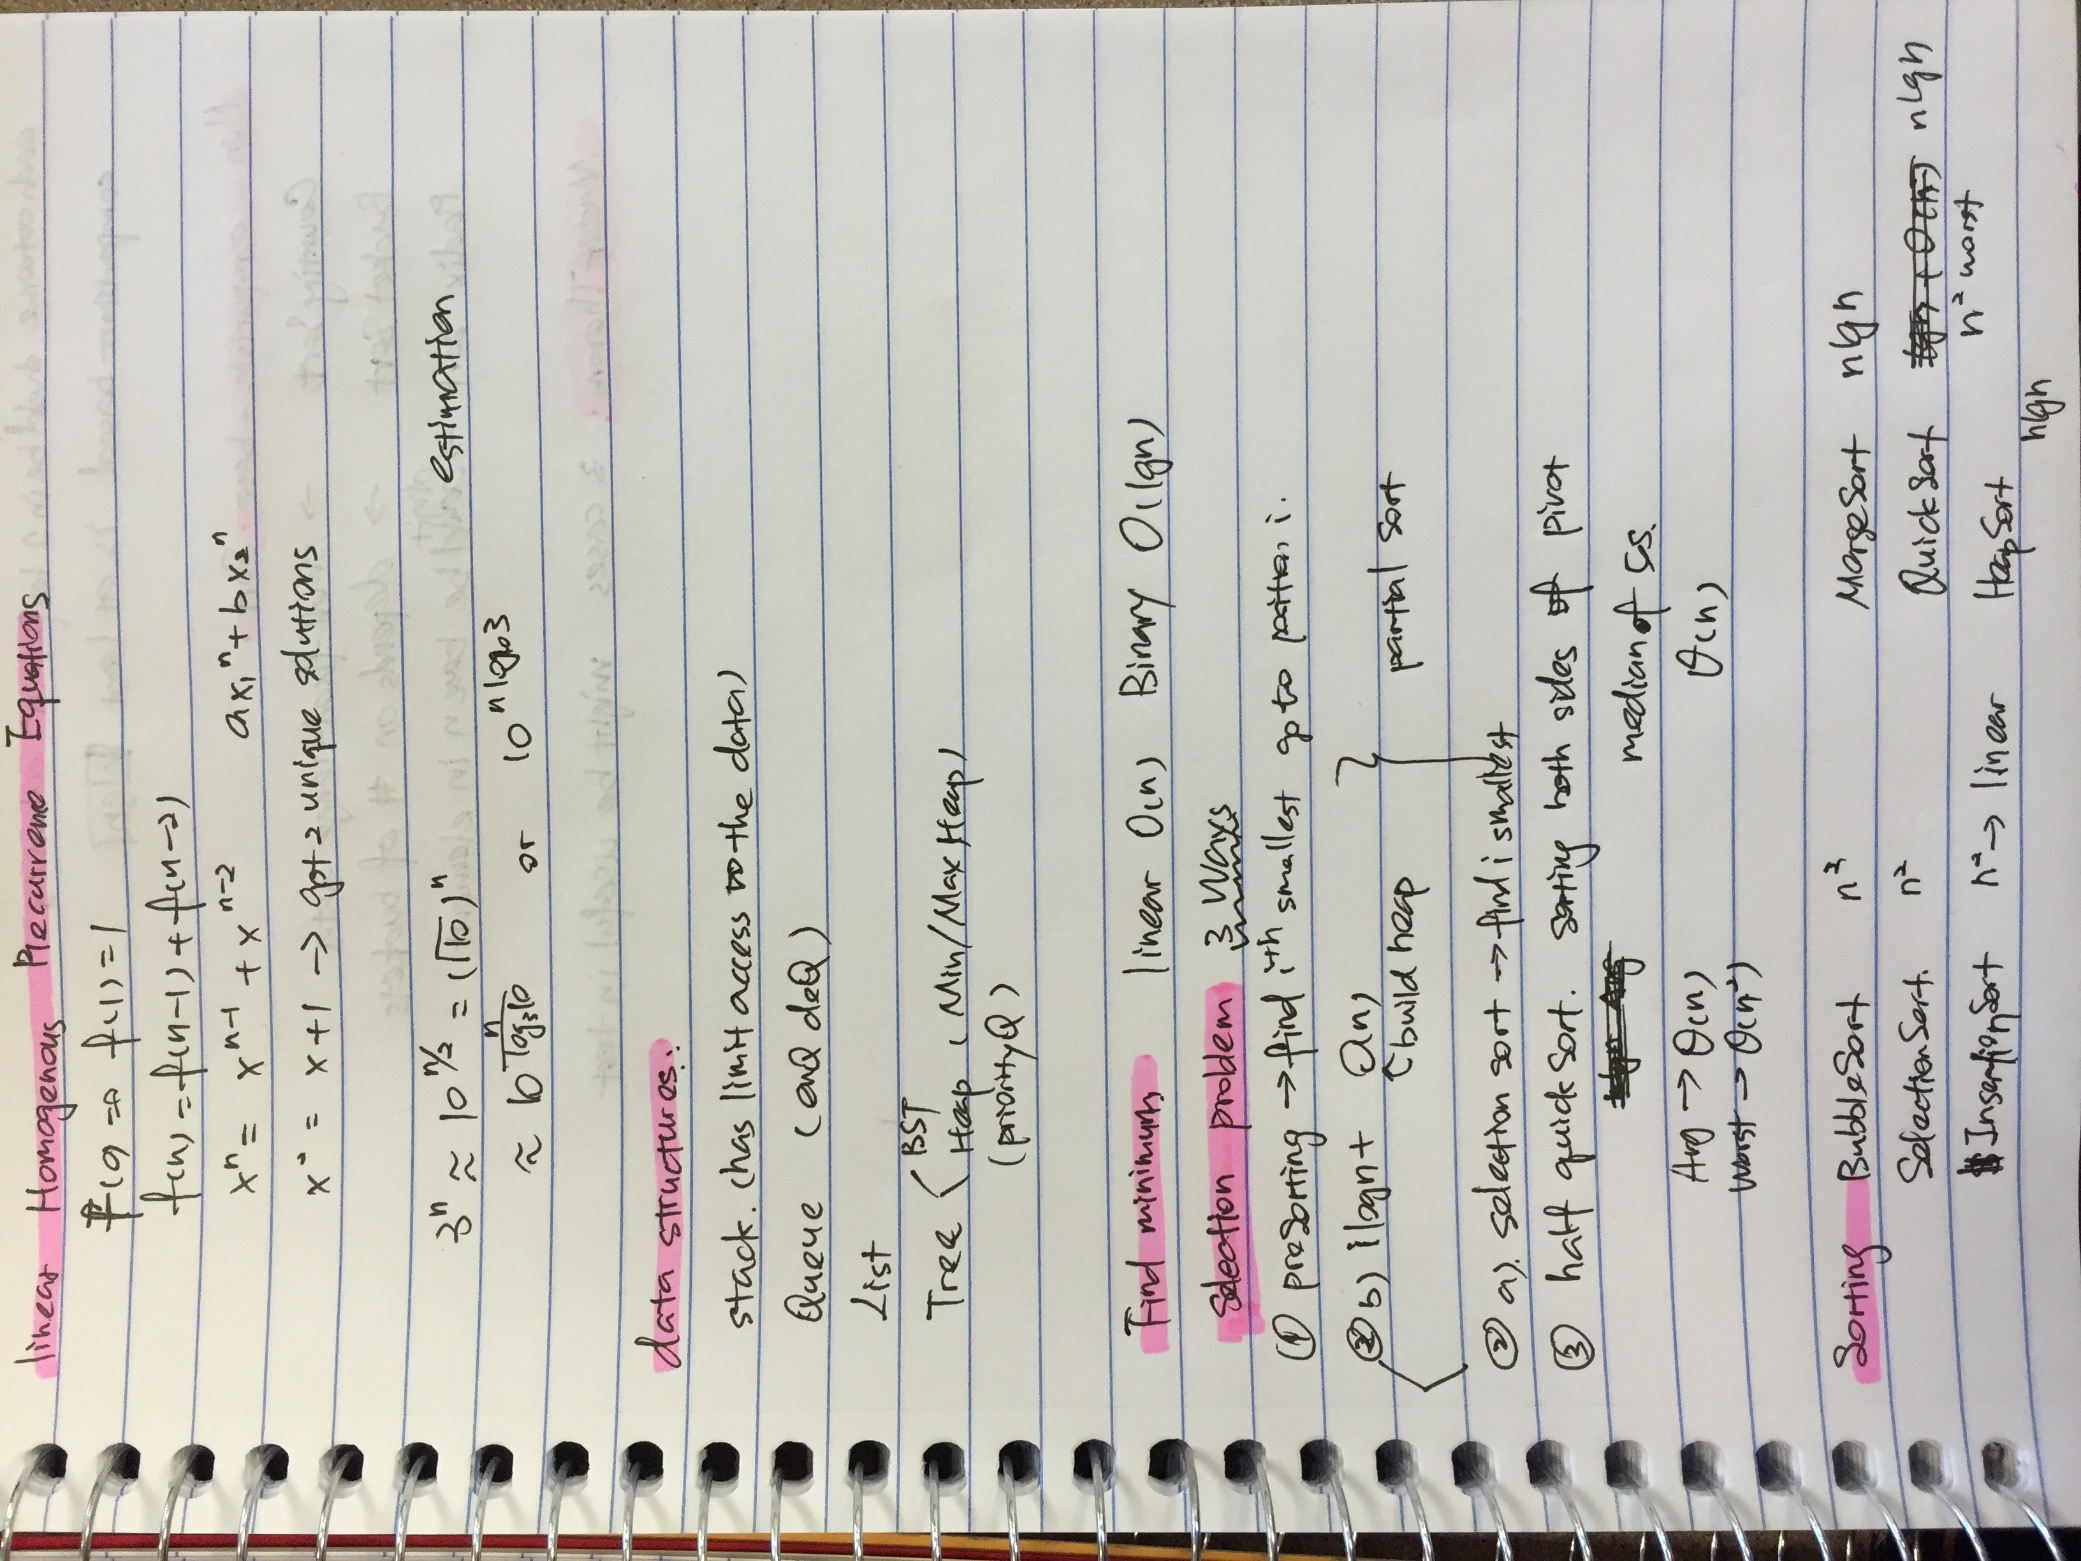 linear Homogenous Recurrence Equations
f(0) = f(1) = 1
f(n) = f(n-1) + f(n-2)
xⁿ = xⁿ⁻¹ + xⁿ⁻² ax₁ⁿ + bx₂ⁿ
x² = x + 1 → got 2 unique solutions
3ⁿ ≈ 10^(n/2) = (√10)ⁿ estimation
≈ 10^(n/log₃10) or 10^(n log₁₀3)
data structures.
stack. (has limit access to the data)
Queue (enQ deQ)
List
Tree < BST
Heap (Min/Max Heap)
(priorityQ)
Find minimum linear O(n) Binary O(lgn)
Selection problem 3 ways
① presorting → find iᵗʰ smallest go to position i.
② b) ilogn + O(n) } partial sort
↑ build heap
② a). selection sort → find i smallest
③ half quick sort. sorting both sides of pivot
median of 5s.
Avg → θ(n) θ(n)
worst → θ(n²)
Sorting BubbleSort n² MergeSort nlgn
SelectionSort. n² QuickSort nlgn
n² worst
InsertionSort n² → linear HeapSort
nlgn